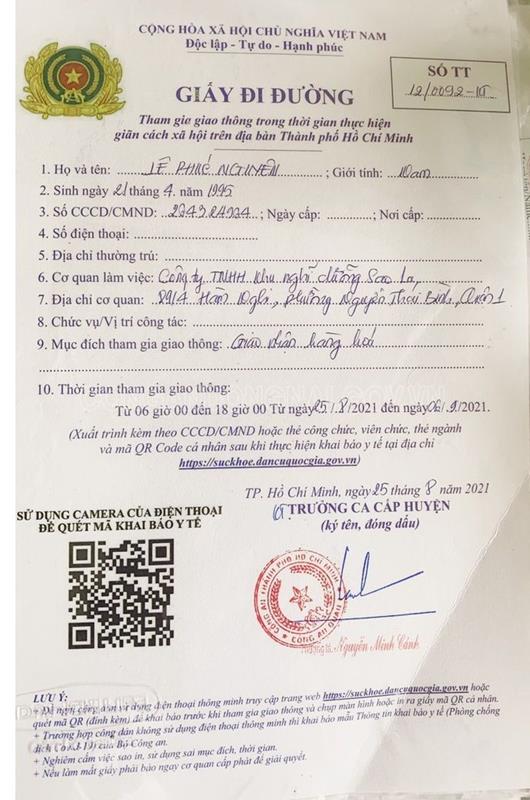 CỘNG HÒA XÃ HỘI CHỦ NGHĨA VIỆT NAM
Độc lập - Tự do - Hạnh phúc
SỐ TT
12/0092-
GIẤY ĐI ĐƯỜNG
Tham gia giao thông trong thời gian thực hiện
giãn cách xã hội trên địa bàn Thành phố Hồ Chí Minh
1. Họ và tên: LÊ PHÚC NGUYÊN; Giới tính: Nam
2. Sinh ngày 21 tháng 4 năm 1995
3. Số CCCD/CMND: ; Ngày cấp: ; Nơi cấp:
4. Số điện thoại:
5. Địa chỉ thường trú:
6. Cơ quan làm việc: Công ty TNHH Khu nghỉ dưỡng Sao La,
7. Địa chỉ cơ quan: Hàm Nghi, phường Nguyễn Thái Bình, Quận 1
8. Chức vụ/Vị trí công tác:
9. Mục đích tham gia giao thông: Giao nhận hàng hoá
10. Thời gian tham gia giao thông:
Từ 06 giờ 00 đến 18 giờ 00 Từ ngày 25/8/2021 đến ngày 06/9/2021.
(Xuất trình kèm theo CCCD/CMND hoặc thẻ công chức, viên chức, thẻ ngành
và mã QR Code cá nhân sau khi thực hiện khai báo y tế tại địa chỉ
https://suckhoe.dancuquocgia.gov.vn)
TP. Hồ Chí Minh, ngày 25 tháng 8 năm 2021
TRƯỞNG CA CẤP HUYỆN
(ký tên, đóng dấu)
SỬ DỤNG CAMERA CỦA ĐIỆN THOẠI
ĐỂ QUÉT MÃ KHAI BÁO Y TẾ
CÔNG AN THÀNH PHỐ HỒ CHÍ MINH
CÔNG AN QUẬN
Nguyễn Minh Cảnh
LƯU Ý:
+ Đề nghị công dân sử dụng điện thoại thông minh truy cập trang web https://suckhoe.dancuquocgia.gov.vn hoặc
quét mã QR (đính kèm) để khai báo trước khi tham gia giao thông và chụp màn hình hoặc in ra giấy mã QR cá nhân.
+ Trường hợp công dân không sử dụng điện thoại thông minh thì khai báo mẫu Thông tin khai báo y tế (Phòng chống
dịch Covid-19) của Bộ Công an.
+ Nghiêm cấm việc sao in, sử dụng sai mục đích, thời gian.
+ Nếu làm mất giấy phải báo ngay cơ quan cấp phát để giải quyết.